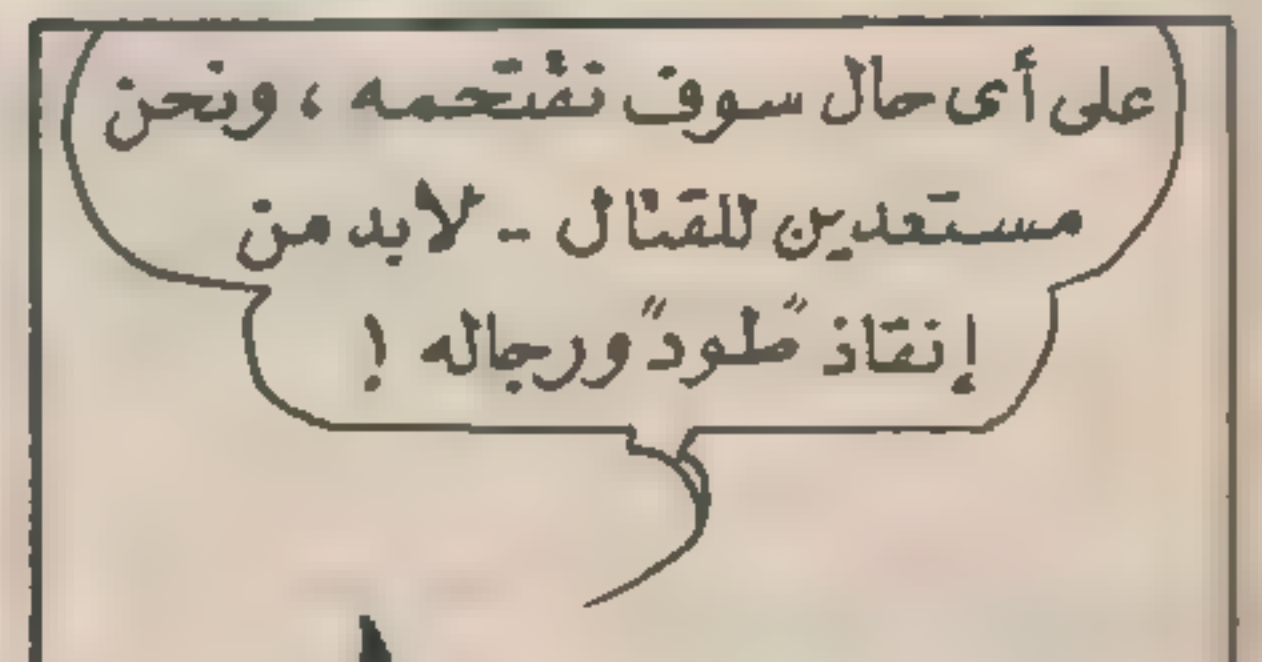 على أى حال سوف نقتحمه ، ونحن
مستعدين للقتال - لابد من
إنقاذ "طود" ورجاله !